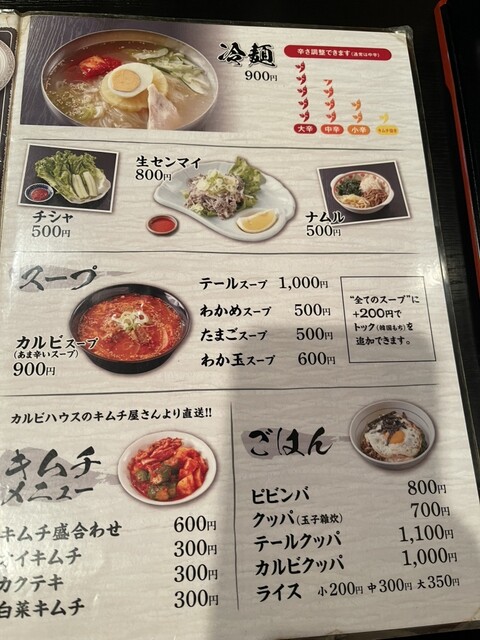 冷麺
900円
辛さ調整できます(通常は中辛)
大辛 中辛 小辛
生センマイ
800円
チシャ
500円
ナムル
500円
スープ
カルビスープ
(あま辛いスープ)
900円
テールスープ 1,000円
わかめスープ 500円
たまごスープ 500円
わか玉スープ 600円
"全てのスープ"に
+200円で
トック(韓国もち)を
追加できます。
カルビハウスのキムチ屋さんより直送!!
キムチ
メニュー
キムチ盛合わせ 600円
イキムチ 300円
カクテキ 300円
白菜キムチ 300円
ごはん
ビビンバ 800円
クッパ(玉子雑炊) 700円
テールクッパ 1,100円
カルビクッパ 1,000円
ライス 小200円 中300円 大350円